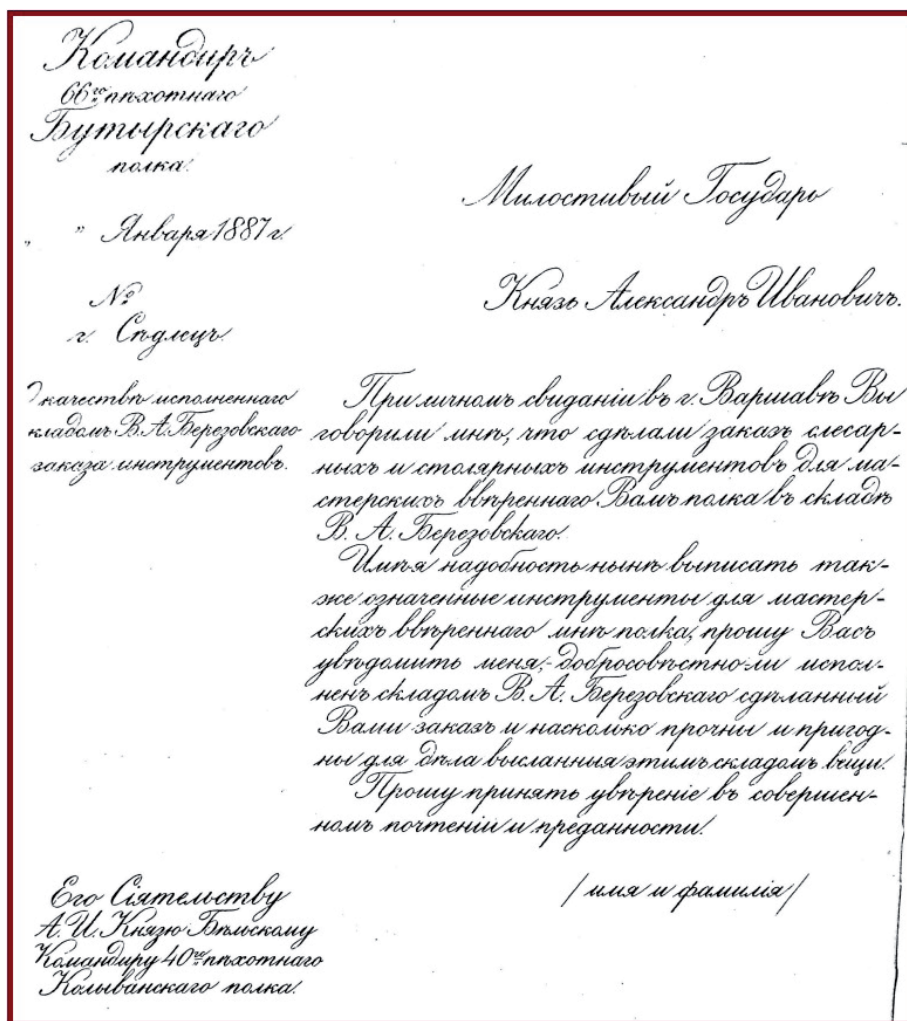 Командиръ
66го пѣхотнаго
Бутырскаго
полка.
" " Января 1887 г.
№
г. Сѣдлецъ.
качествѣ исполненнаго
складомъ В. А. Березовскаго
заказа инструментовъ.
Милостивый Государь
Князь Александръ Ивановичъ.
При личномъ свиданіи въ г. Варшавѣ Вы
говорили мнѣ, что сдѣлали заказъ слесар-
ныхъ и столярныхъ инструментовъ для ма-
стерскихъ ввѣреннаго Вамъ полка въ складѣ
В. А. Березовскаго.
Имѣя надобность нынѣ выписать так-
же означенные инструменты для мастер-
скихъ ввѣреннаго мнѣ полка, прошу Васъ
увѣдомить меня,- добросовѣстно-ли испол-
ненъ складомъ В. А. Березовскаго сдѣланный
Вами заказъ и насколько прочны и пригод-
ны для дѣла высланныя этимъ складомъ вещи.
Прошу принять увѣреніе въ совершен-
номъ почтеніи и преданности.
/имя и фамилія/
Его Сіятельству
А. И. Князю Бѣльскому
Командиру 40го пѣхотнаго
Колыванскаго полка.